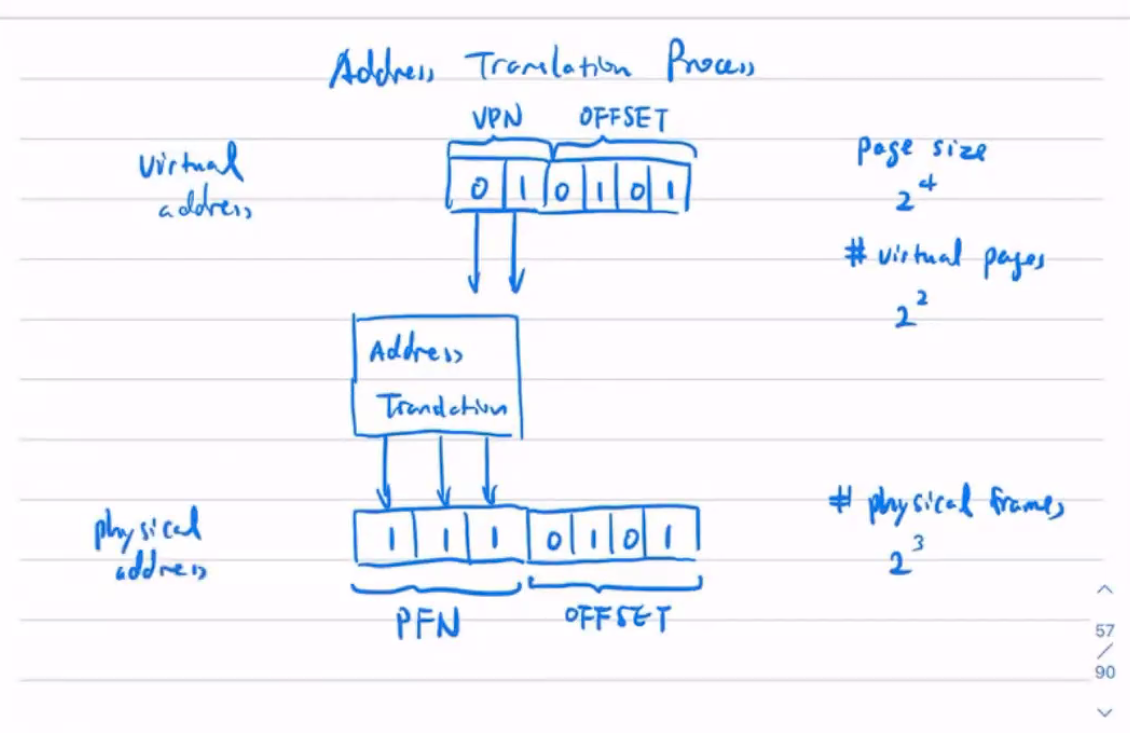 Address Translation Process
VPN OFFSET
virtual address
0 1 0 1 0 1
page size
2^4
# virtual pages
2^2
Address
Translation
physical address
1 1 1 0 1 0 1
# physical frames
2^3
PFN OFFSET
57
/
90